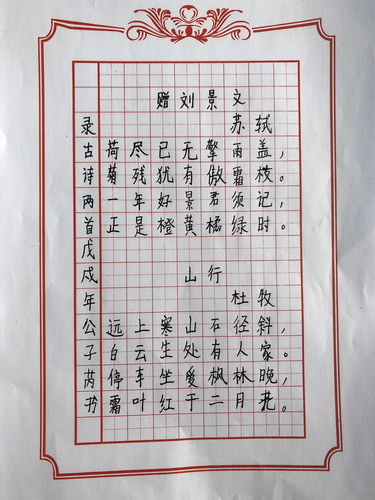 赠刘景文
苏轼
荷尽已无擎雨盖，
菊残犹有傲霜枝。
一年好景君须记，
正是橙黄橘绿时。
山行
杜牧
远上寒山石径斜，
白云生处有人家。
停车坐爱枫林晚，
霜叶红于二月花。
录古诗两首戊戌年公子芮书